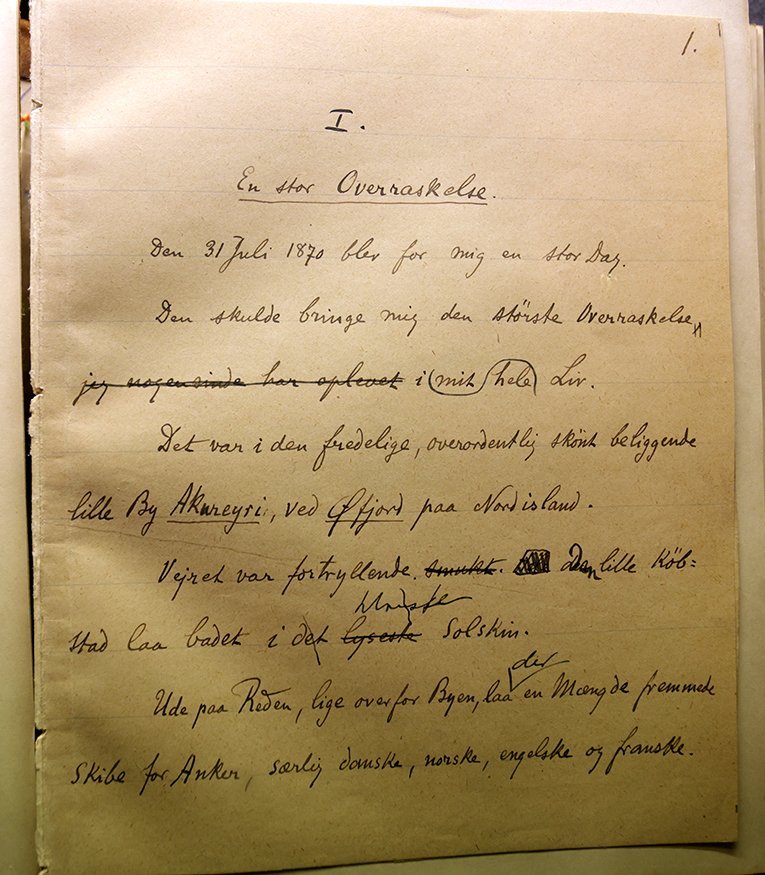 1.
I.
En stor Overraskelse.
Den 31 Juli 1870 blev for mig en stor Dag.
Den skulde bringe mig den störste Overraskelse,
jeg nogensinde har oplevet i mit hele Liv.
Det var i den fredelige, overordentlig skönt beliggende
lille By Akureyri, ved Øfjord paa Nordisland.
Vejret var fortryllende. smukt. Den lille Köb=
stad laa badet i det lyseste Solskin.
Ude paa Reden, lige overfor Byen, laa der en Mængde fremmede
Skibe for Anker, særlig danske, norske, engelske og franske.